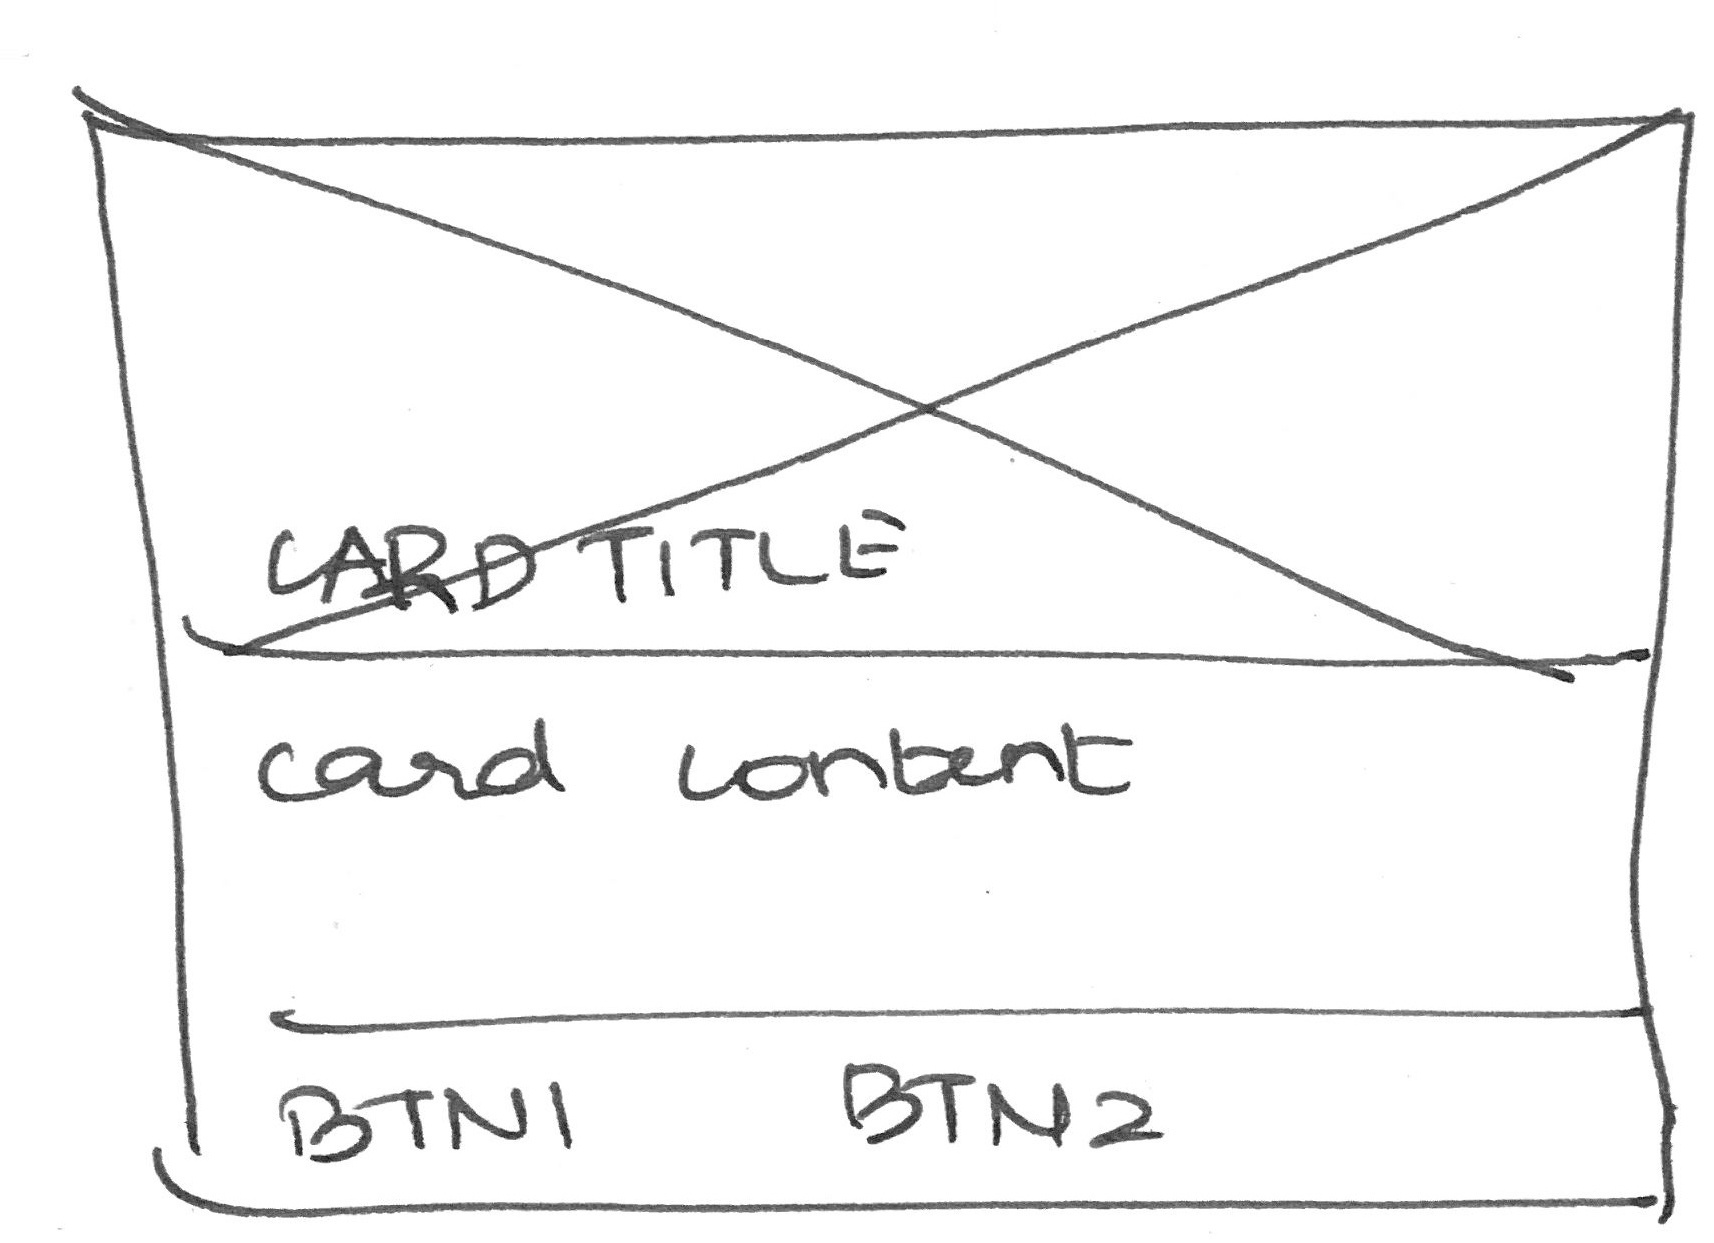 CARD TITLE
card content
BTN1 BTN2